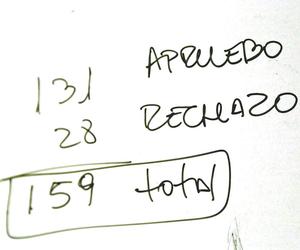 131 APRUEBO
28 RECHAZO
159 total